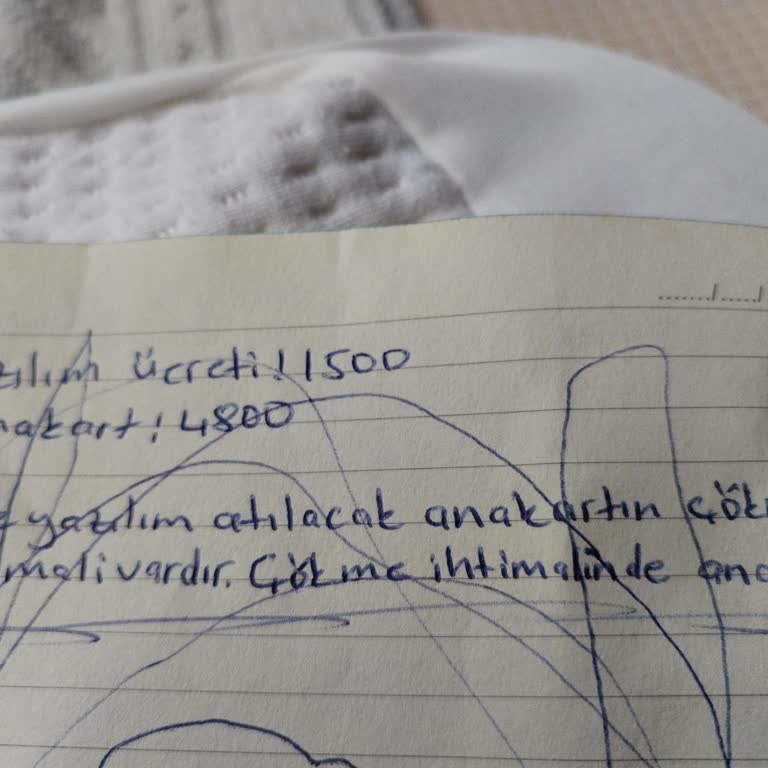 zılım ücreti: 1500
nakart: 4800
yazılım atılacak anakartın çök
mali vardır. Çökme ihtimalinde ana